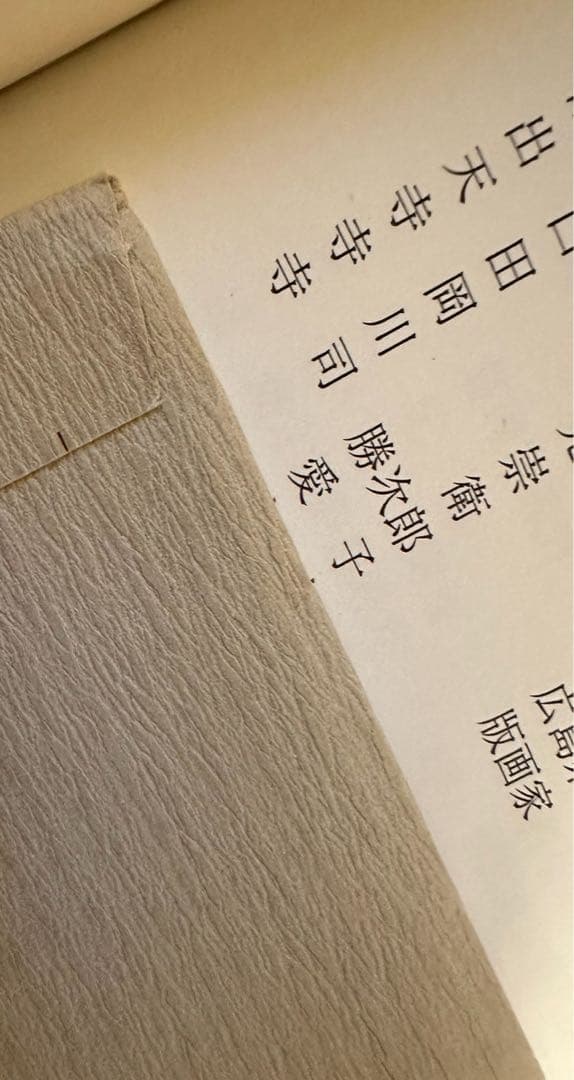 出口
天田
寺岡 崇
寺川 衛 広島
寺司 勝次郎 版画家
愛子